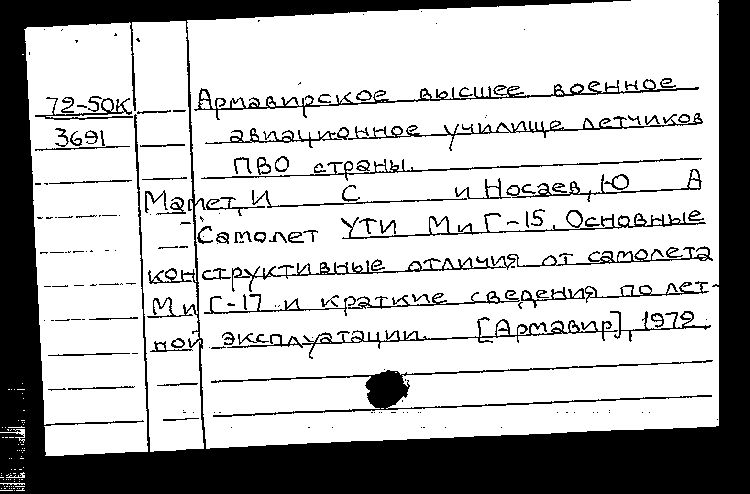 72-50К Армавирское высшее военное
3691 авиационное училище летчиков
ПВО страны.
Мамет, И С и Носаев, Ю А
Самолет УТИ МиГ-15. Основные
конструктивные отличия от самолета
МиГ-17 и краткие сведения по лет-
ной эксплуатации. [Армавир], 1972.